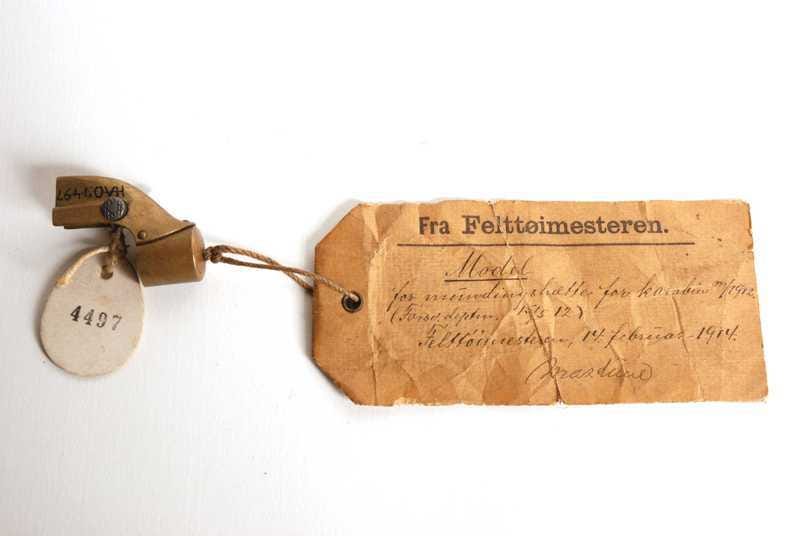 HAO4497
4497
Fra Felttøimesteren.
Model
for mundingshætte for karabin m/1912
15/3 12)
Felttøimesteren, 14. februar 1914.